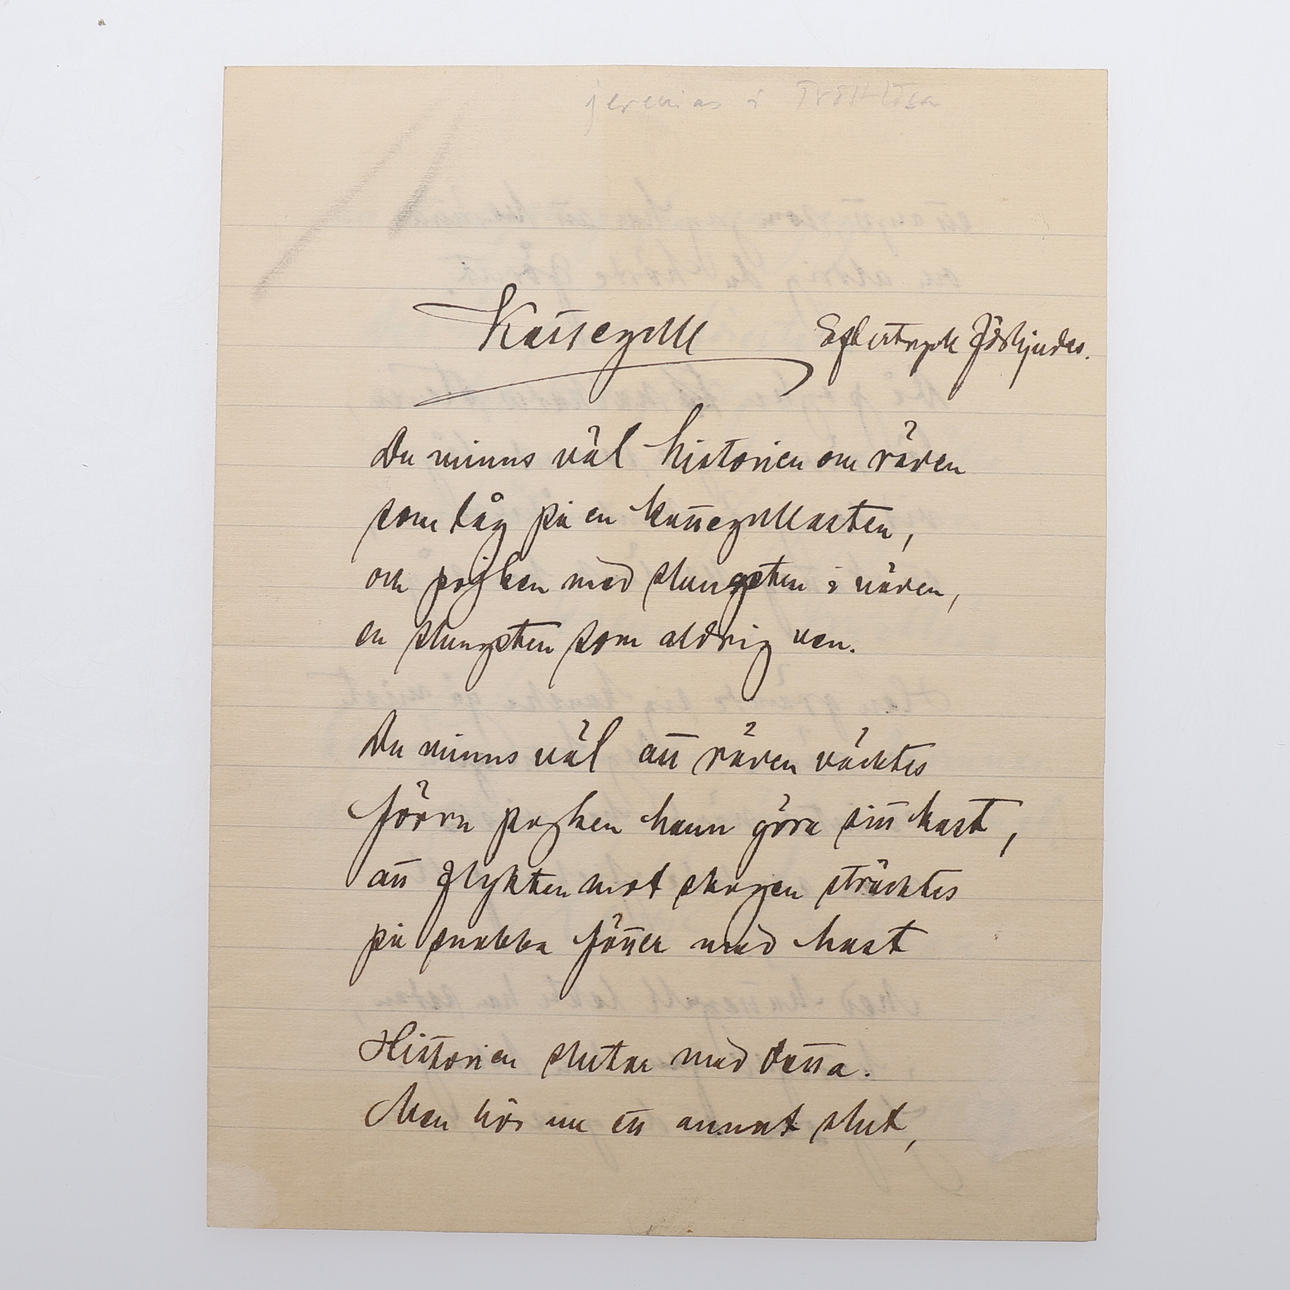 jeremias i Tröstlösa
Kattegull Eftertryck förbjudes.
Du minns väl historien om räven
som låg på en kattegullsten,
och pojken med slungsten i näven,
en slungsten som aldrig ven.
Du minns väl att räven väcktes
förrn pojken hann göra sitt kast,
att flykten mot skogen sträcktes
på snabba fötter med hast
Historien slutar med detta.
Men hör nu ett annat slut,